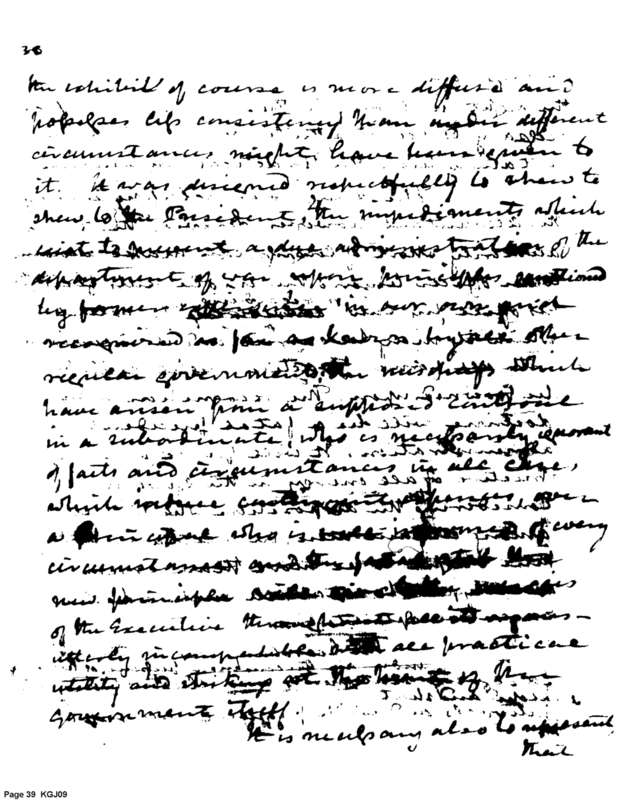 38
the exhibit of course is more diffuse and
possesses less consistency than under different
circumstances, might, have been given to
it. It was designed respectfully to shew to
shew to the President, the impediments which
exist to prevent a due administration of the
department of war upon principles sanctioned
by former in our own and
recognized as far as known by all other
regular governments, the mischiefs which
have arisen from a supposed controul
in a subordinate, who is necessarily ignorant
of facts and circumstances in all cases,
which induce contingent expenses over
a principal who is informed of every
circumstance and the
new principle
of the Executive
utterly incompatible with all practical
utility and striking at the of the
government itself.
It is necessary also to represent,
that
Page 39 KGJ09